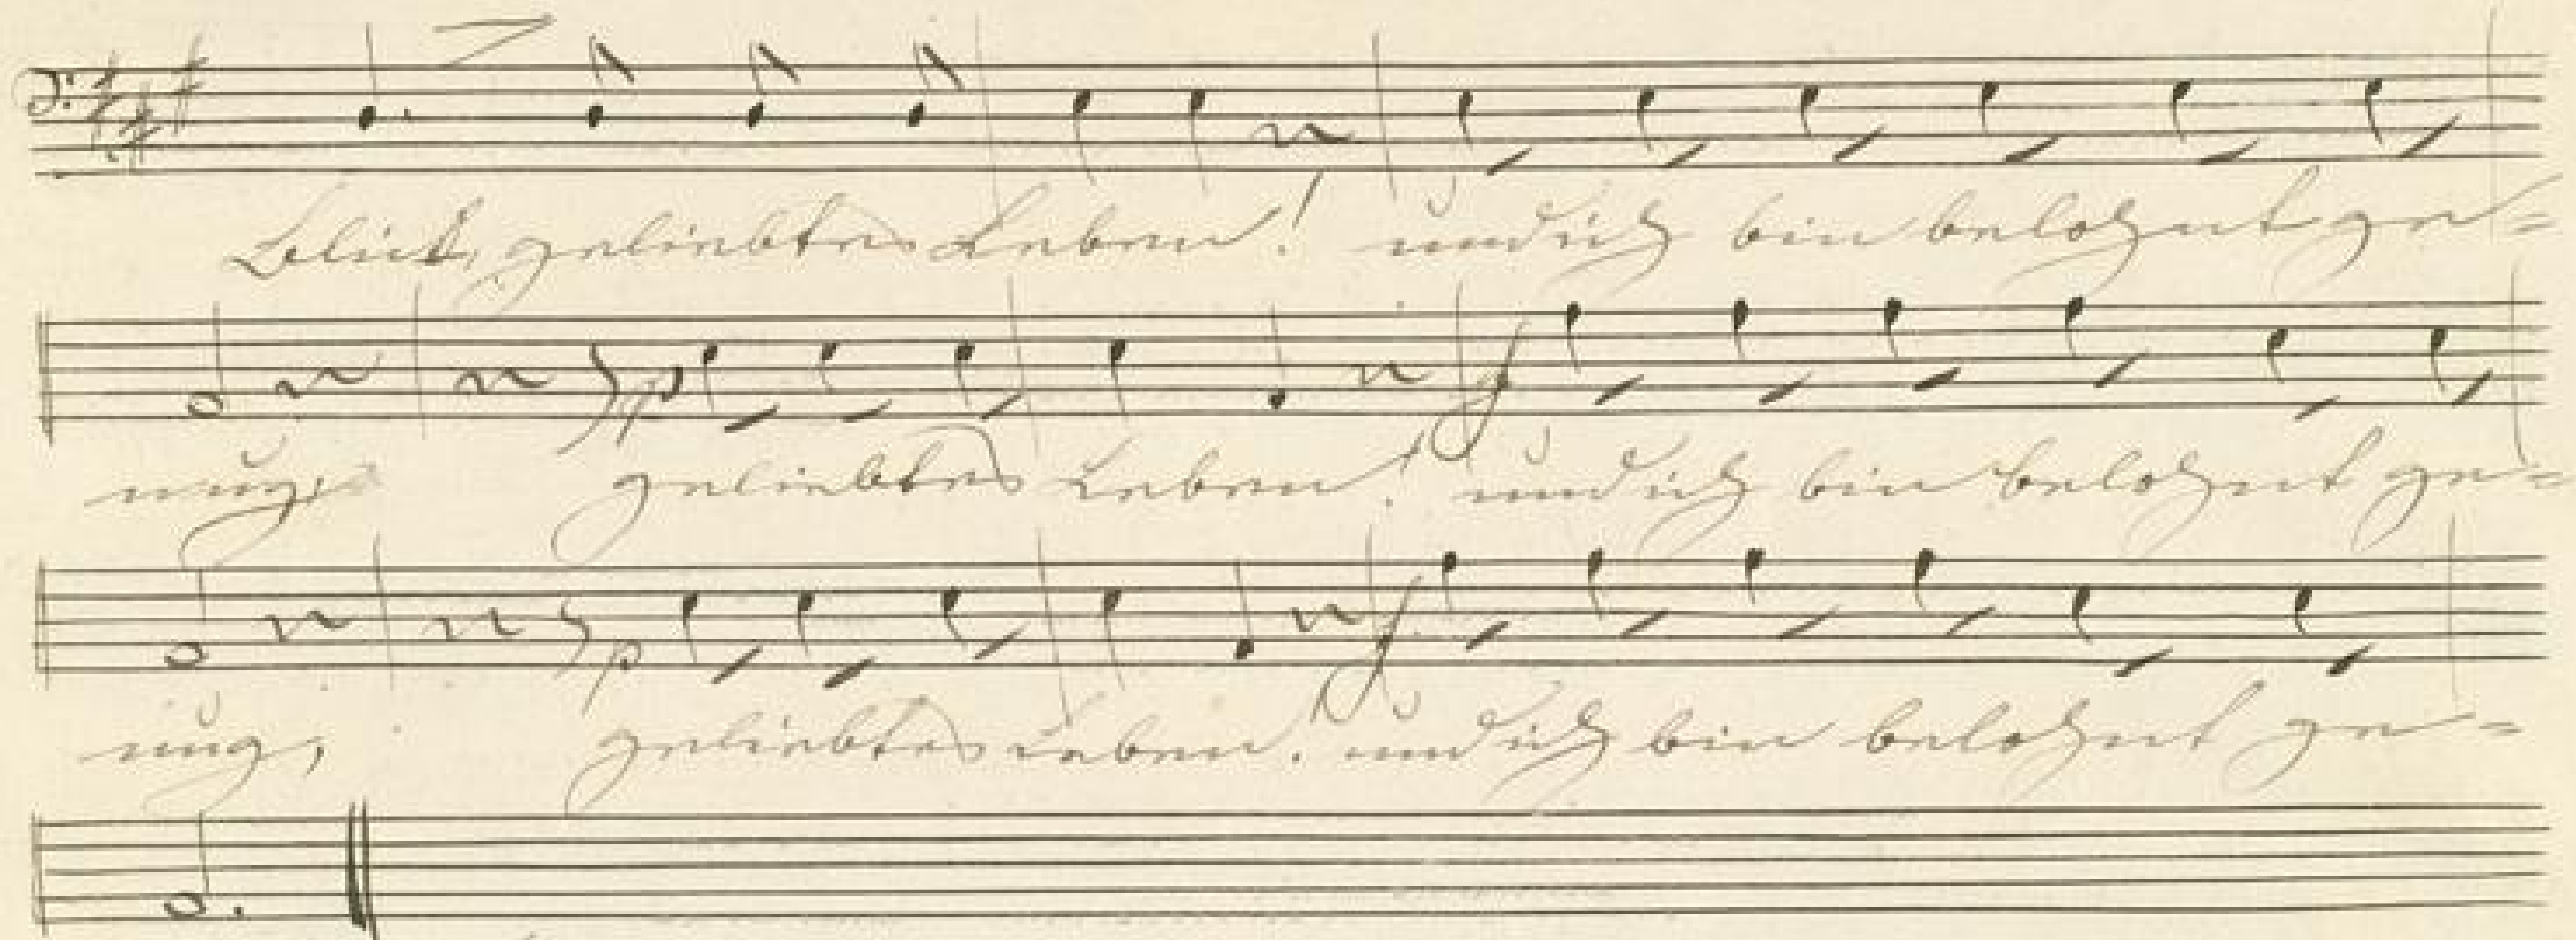 Blick, geliebtes Leben! und ich bin belohnt ge=
p f
nug, geliebtes Leben! und ich bin belohnt ge=
p f
nug, geliebtes Leben! und ich bin belohnt ge=